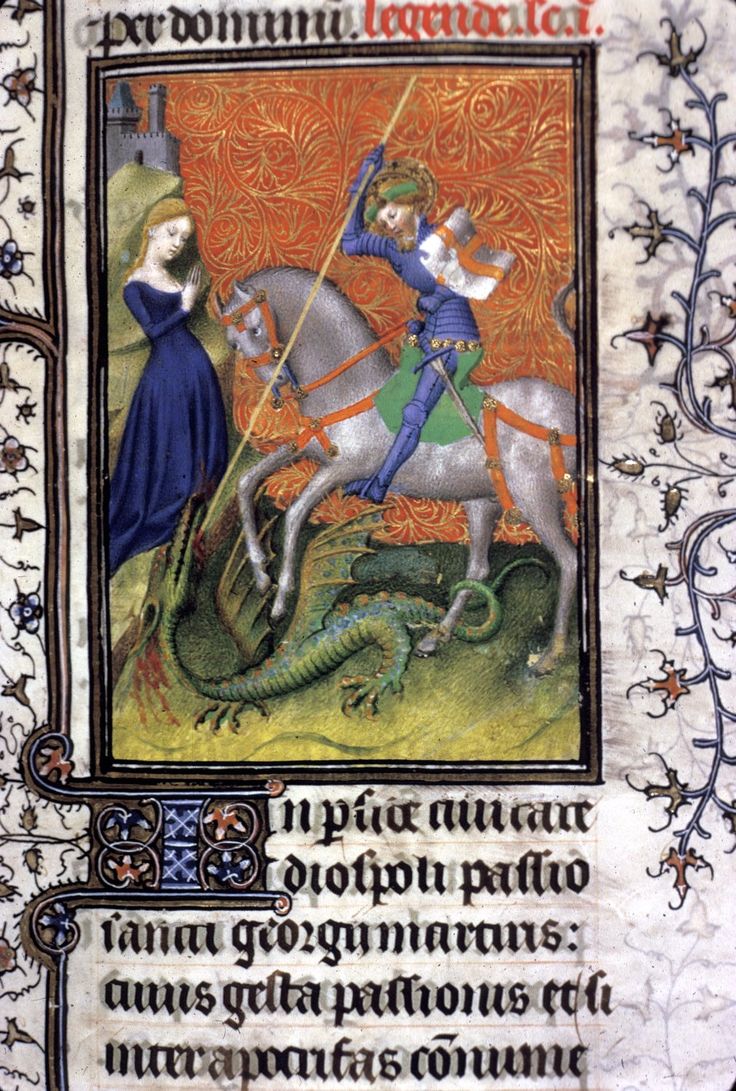 per dominū. legende. sc̄ī.
In ꝑside ciuitate
diospoli passio
sancti georgij martiris:
cuius gesta passionis etsi
inter apocrifas cōnume